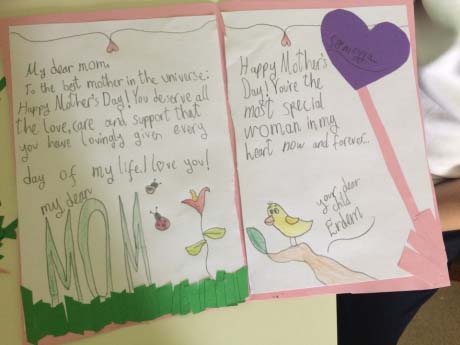 My dear mom.
To the best mother in the universe:
Happy Mother's Day! You deserve all
the love, care and support that
you have lovingly given every
day of my life. I love you!
my dear
MOM
Happy Mother's
Day! You're the
most special
woman in my
heart now and forever..
your dear
child
Erdem